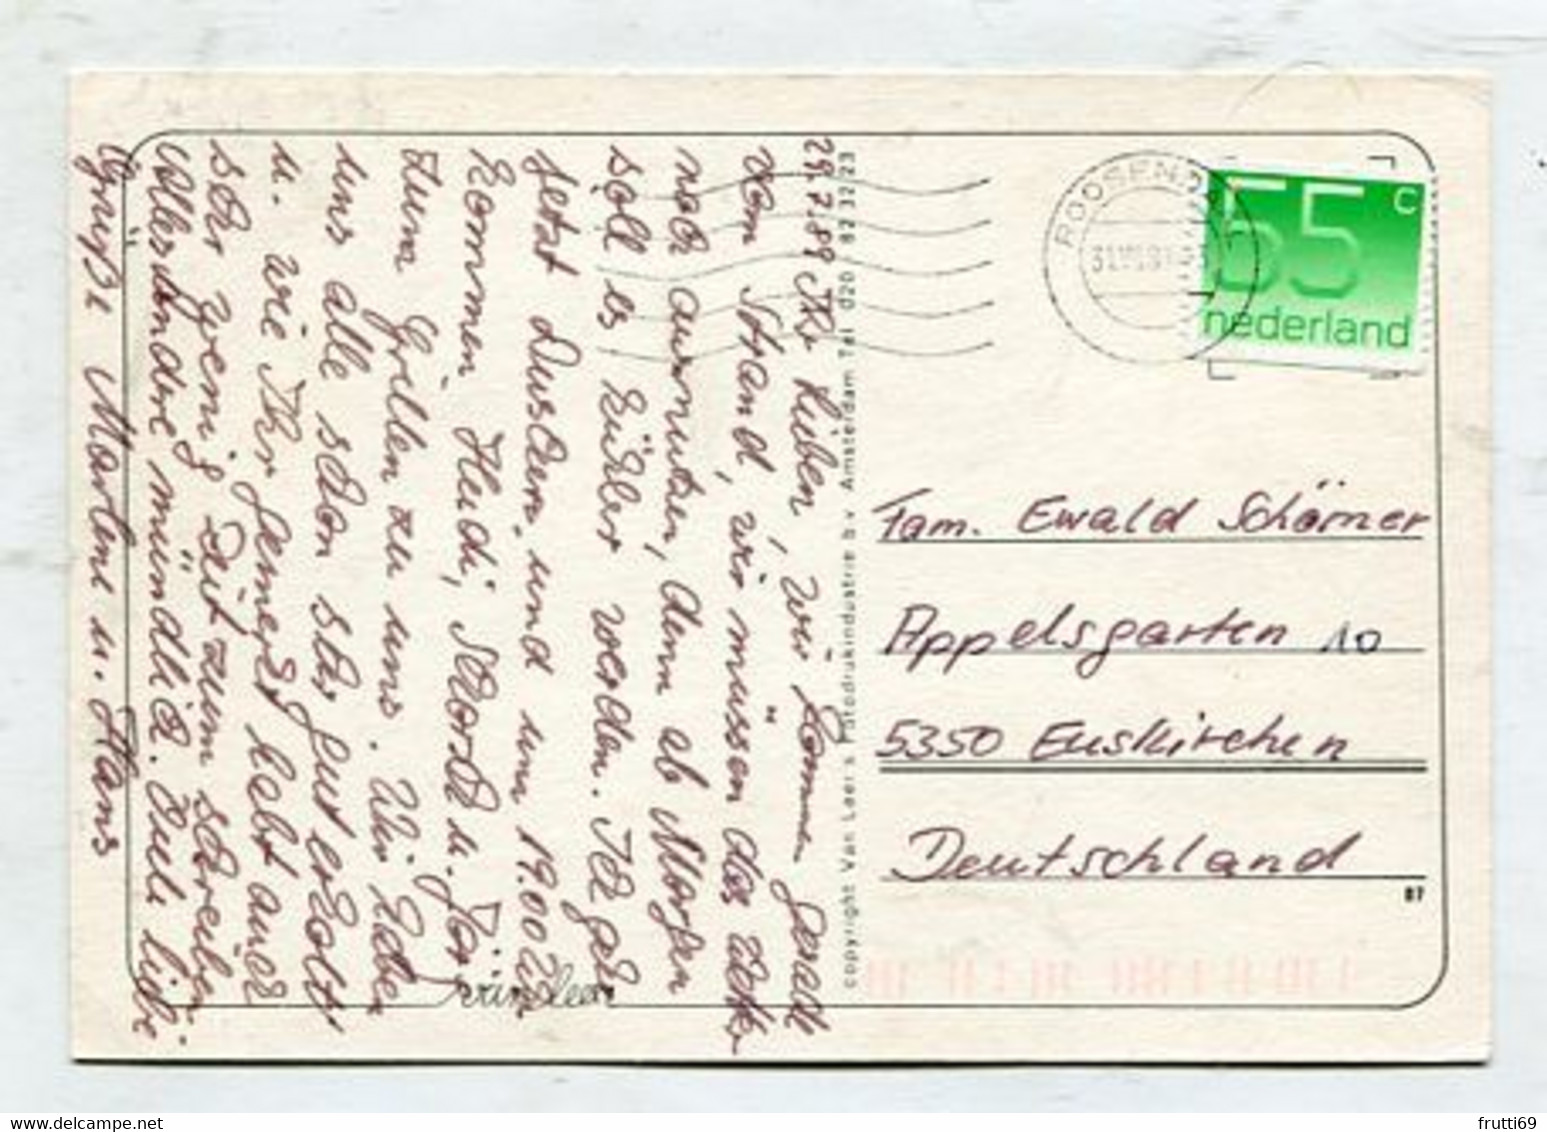 29.7.89 Ihr Lieben, wir kommen gerade
vom Strand, wir müssen das doch
noch ausnutzen, denn ab Morgen
soll es kühler werden. Ich geh
jetzt Duschen, und um 19.00 Uhr
kommen Heidi, u. Jörg
zum Grillen zu uns. Wir haben
uns alle schon sehr gut erholt,
u. wie Ihr gemerkt habt auch
sehr wenig Zeit zum schreiben.
alles andere mündlich. Viele liebe
Grüße Marlene u. Hans
van Leer
copyright Van Leer's Fotodrukindustrie b.v. Amsterdam Tel. 020 82 32 23
ROOSENDAAL
55 c
nederland
Fam. Ewald Schörner
Appelsgarten 10
5350 Euskirchen
Deutschland
87
frutti69